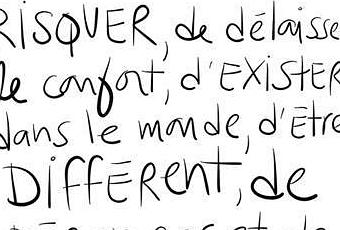 RISQUER, de délaisse
le confort, d'EXISTER
dans le monde, d'être
DIFFÉRent, de